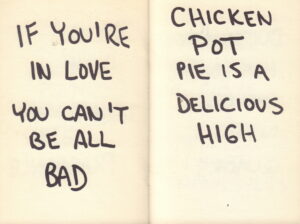 IF YOU'RE
IN LOVE
YOU CAN'T
BE ALL
BAD
CHICKEN
POT
PIE IS A
DELICIOUS
HIGH